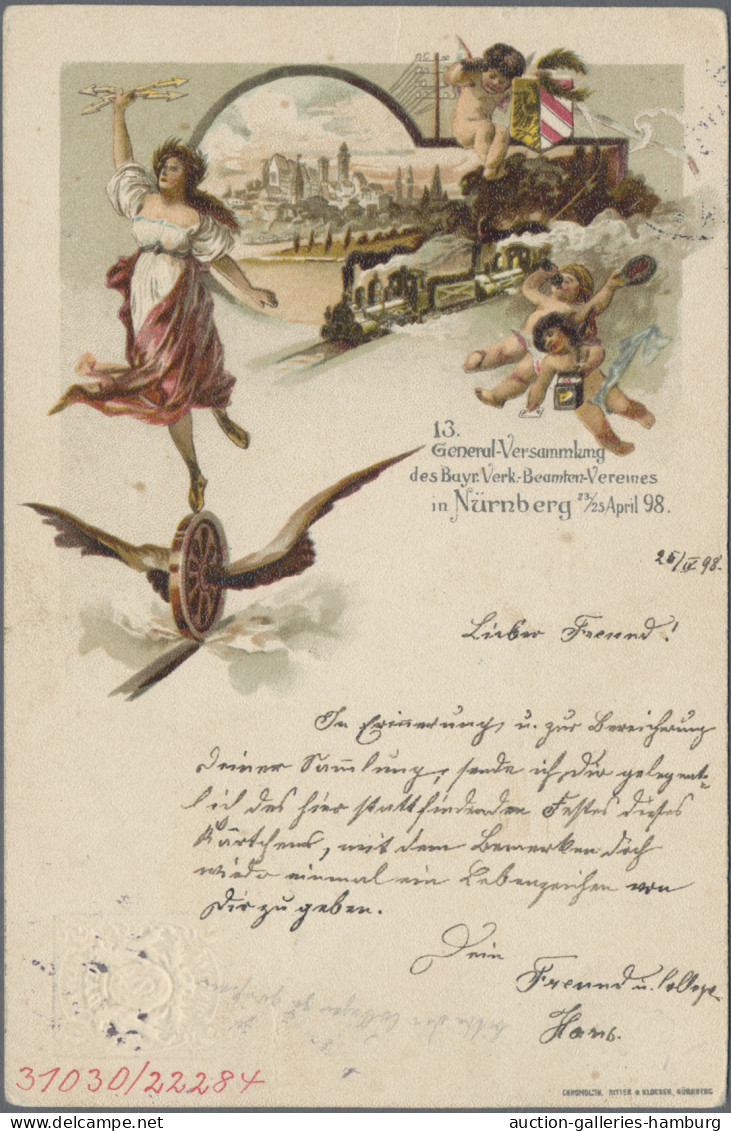 13.
General-Versammlung
des Bayr. Verk.-Beamten-Vereines
in Nürnberg 23/25 April 98.
25/IV 98.
Lieber Freund!
In Erinnerung, u. zur Bereicherung
Deiner Sammlung, sende ich Dir gelegent-
lich des hier stattfindenden Festes dieses
Kärtchens, mit dem Bemerken doch
wieder einmal ein Lebenzeichen von
Dir zu geben.
Dein
Freund u. College
Hans.
31030/22284
CHROMOLITH. RITTER & KLOEDEN, NÜRNBERG
auction-galleries-hamburg